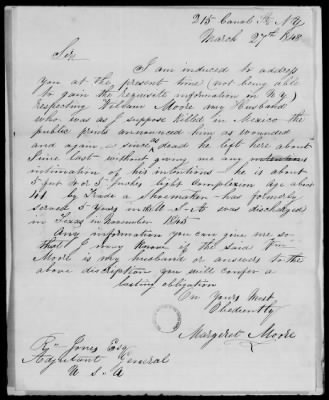 215 Canal St N.Y
March 27th 1848
Sir
I am induced to address
you at the present time (not being able
to gain the requisite information in N.Y)
respecting William Moore my Husband
who was as I suppose killed in Mexico the
public prints announced him as wounded
and again as since dead he left here about
June last without giving me any
intimation of his intentions — he is about
5 feet 4 or 5 Inches light Complexion Age about
by Trade a Shoemaker — has formerly
served 5 years in U.S.A was discharged
in Texas in November 1845
Any information you can give me so
that I may Know if the said Wm
Moore is my husband or answers to the
above discription you will confer a
lasting obligation
On Yours Most
Obediently
Margaret Moore
Jones Esq
Adjutant General
U S A